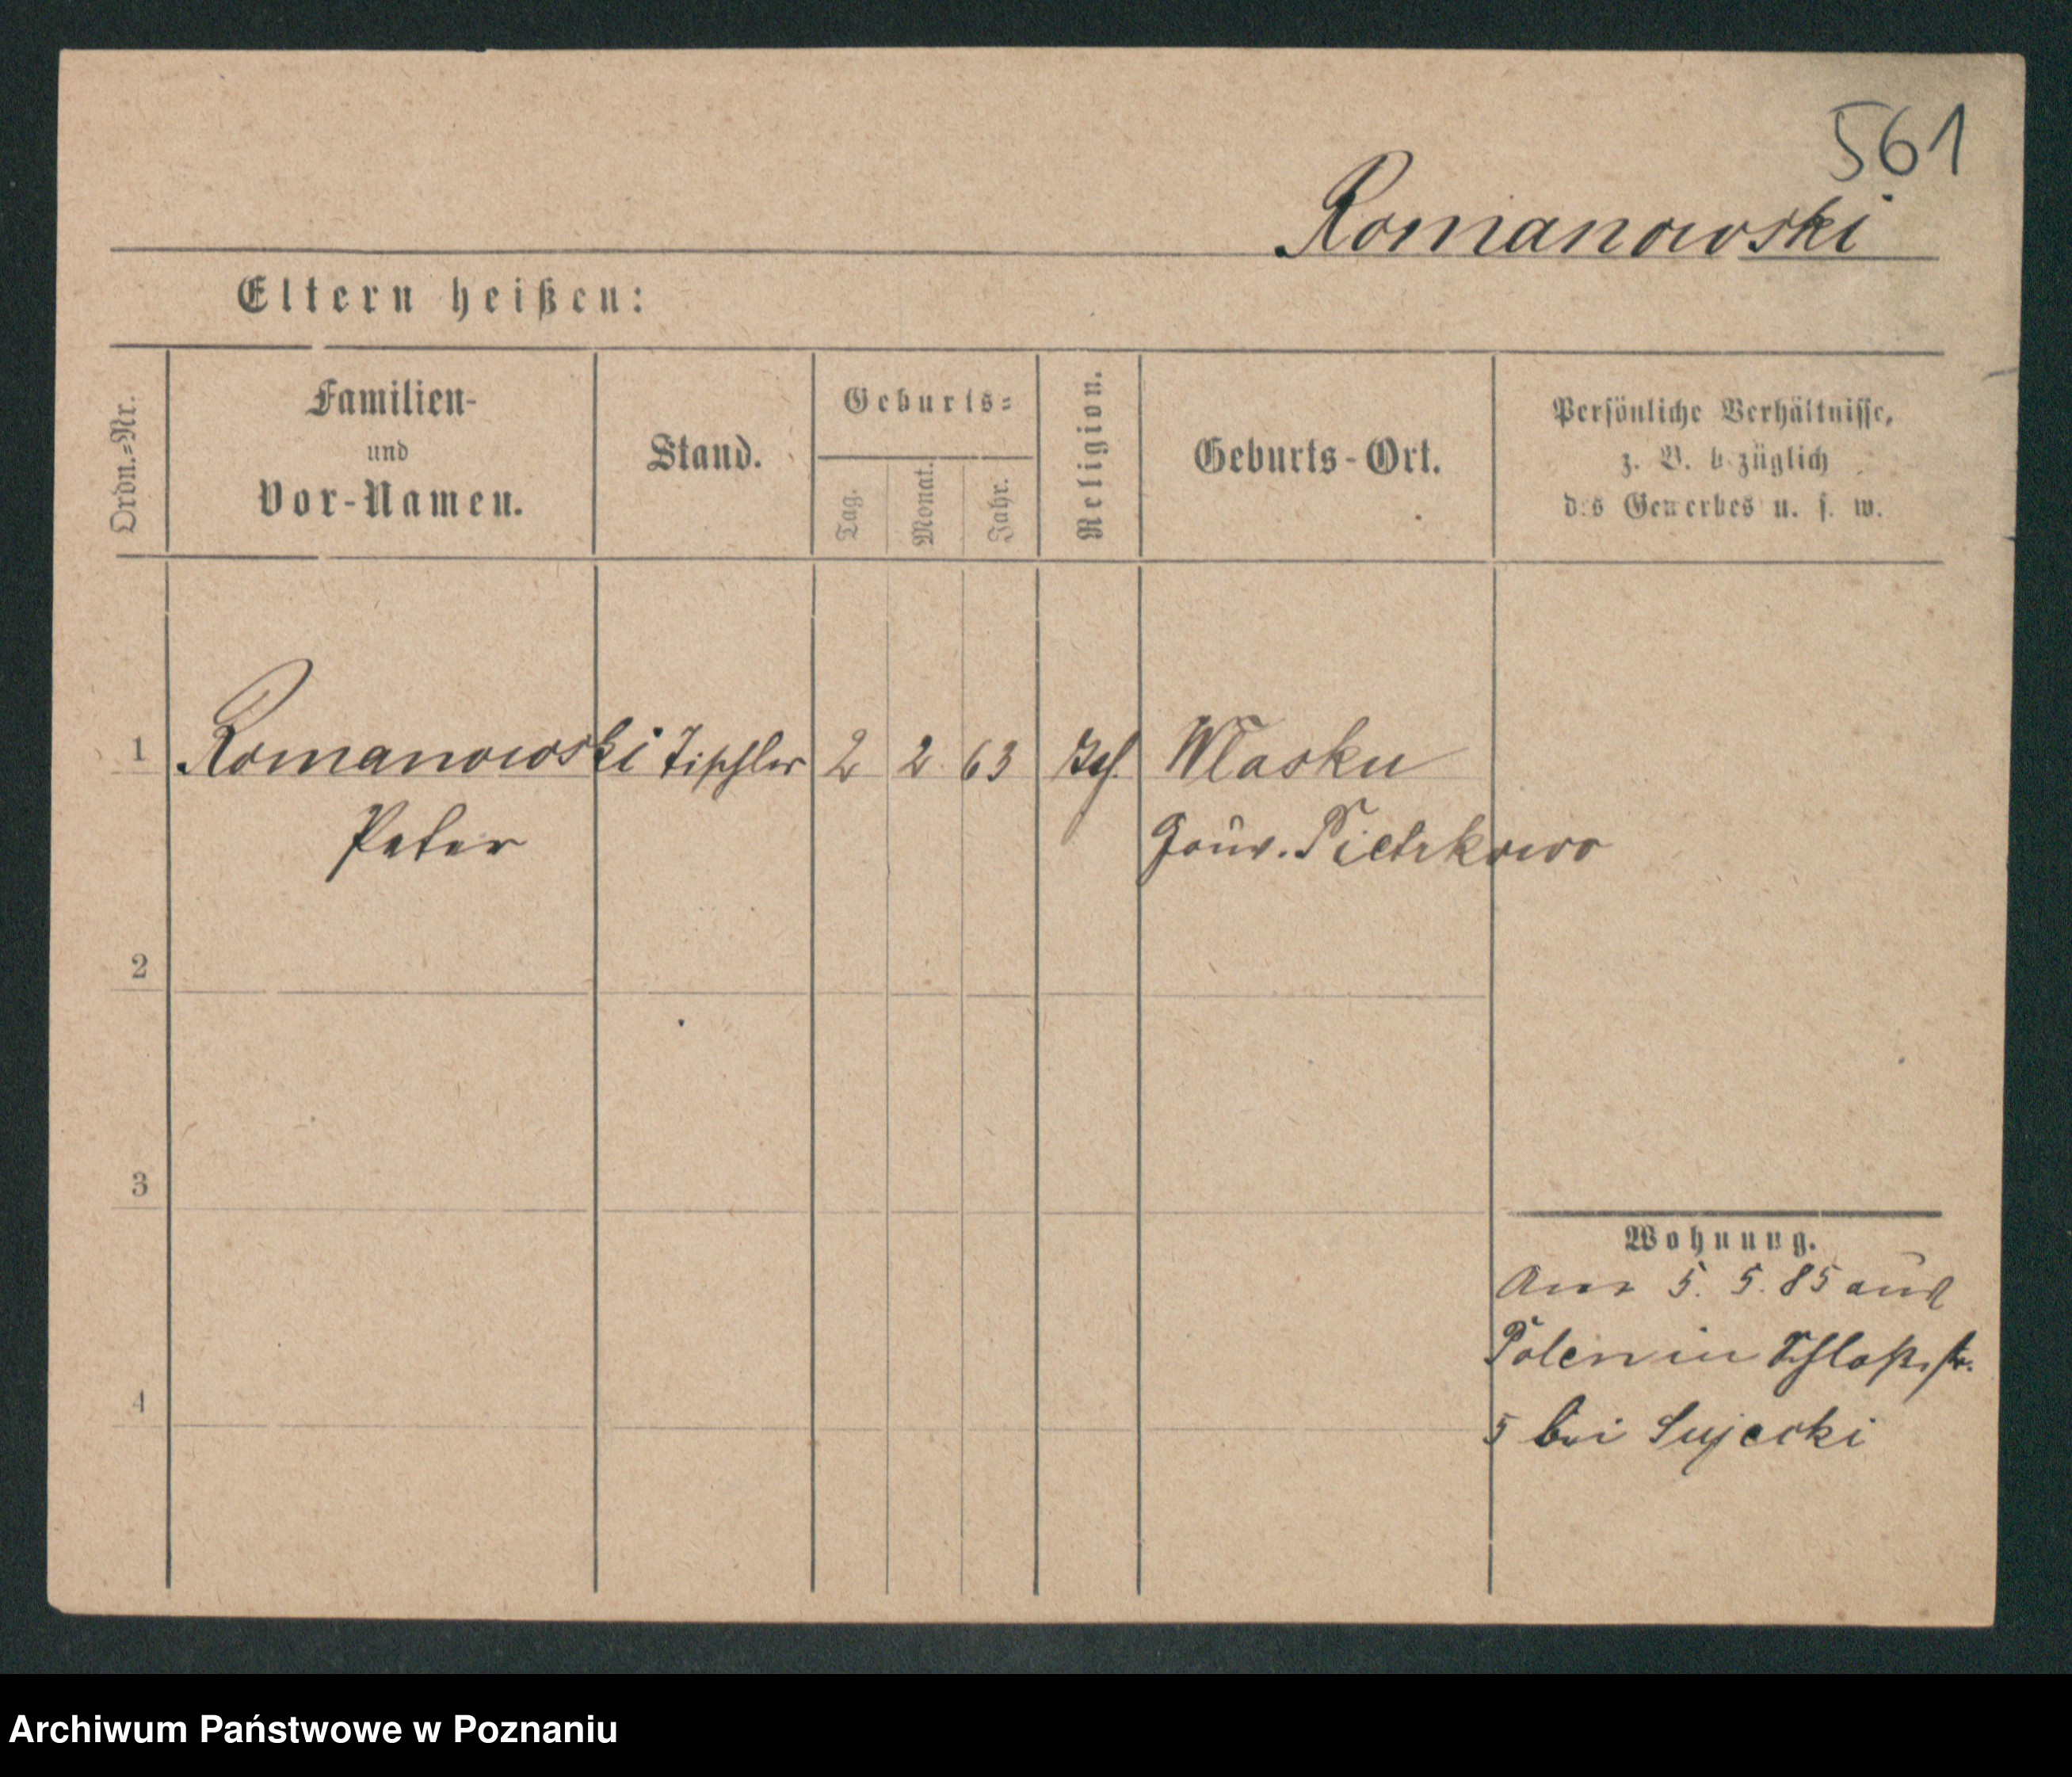 561
Romanowski
Eltern heißen:
Ordn.=Nr.
Familien-
und
Vor-Namen.
Stand.
Geburts=
Tag.
Monat.
Jahr.
Religion.
Geburts-Ort.
Persönliche Verhältnisse,
z. B. bezüglich
des Gewerbes u. s. w.
1 Romanowski Tischler 2 2 63 Wlasku
Peter Gouv. Pietrkowo
2
3
4
Wohnung.
5. 5. 85 aus
Polen in Schloßstr.
5 bei Sujecki
Archiwum Państwowe w Poznaniu